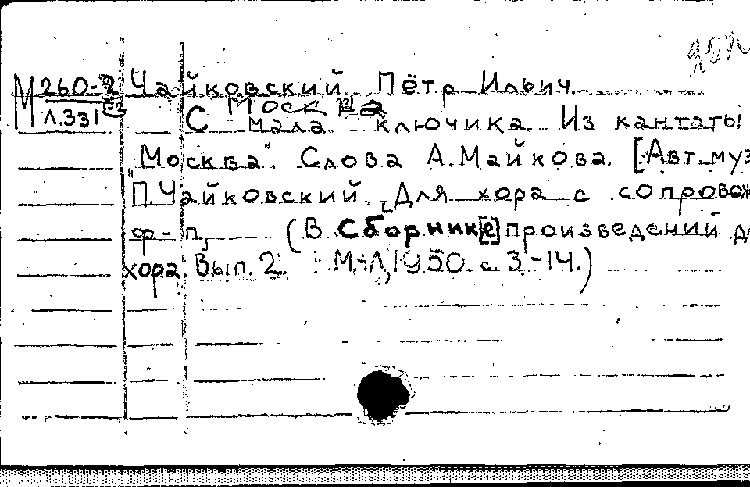 М 260-2 Чайковский Пётр Ильич
Л.331 Москва
С мала ключика. Из кантаты
"Москва". Слова А.Майкова. [Авт. муз
"П.Чайковский. Для хора с сопровож
ф-п. (В Сборник[е] произведений д
хора. Вып. 2. М-Л, 1950. с. 3-14.)